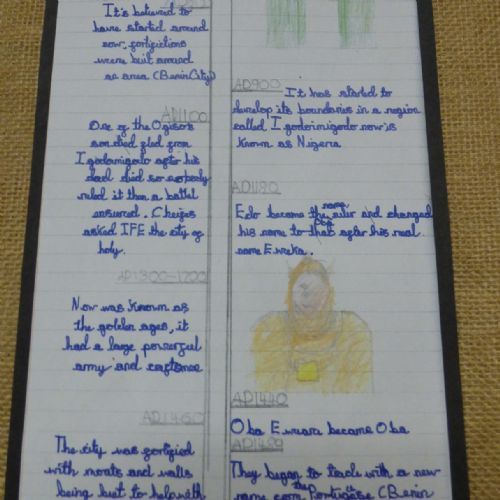 It's believed to
have started around
now, fortifictions
were built around
an area (Benin City)
AD1100
One of the Ogiso's
son died fled from
Igodomigodo after his
dead died so nobody
ruled it then a battel
ensured. Cheifes
asked IFE the city of
holy.
AD1300-1700
Now was known as
the golden ages, it
had a large powerful
army and craftsmen
AD1460
The city was fortified
with moats and walls
being buit to help with
AD900
It has started to
develop its boundaries in a region
called Igodoimigodo now is
known as Nigeria
AD1180
Edo became the new ruler and changed
his name to that after his real
name Eweka.
AD1440
Oba Ewuare became Oba
They began to trade with a new
name com the Portugise (Benin